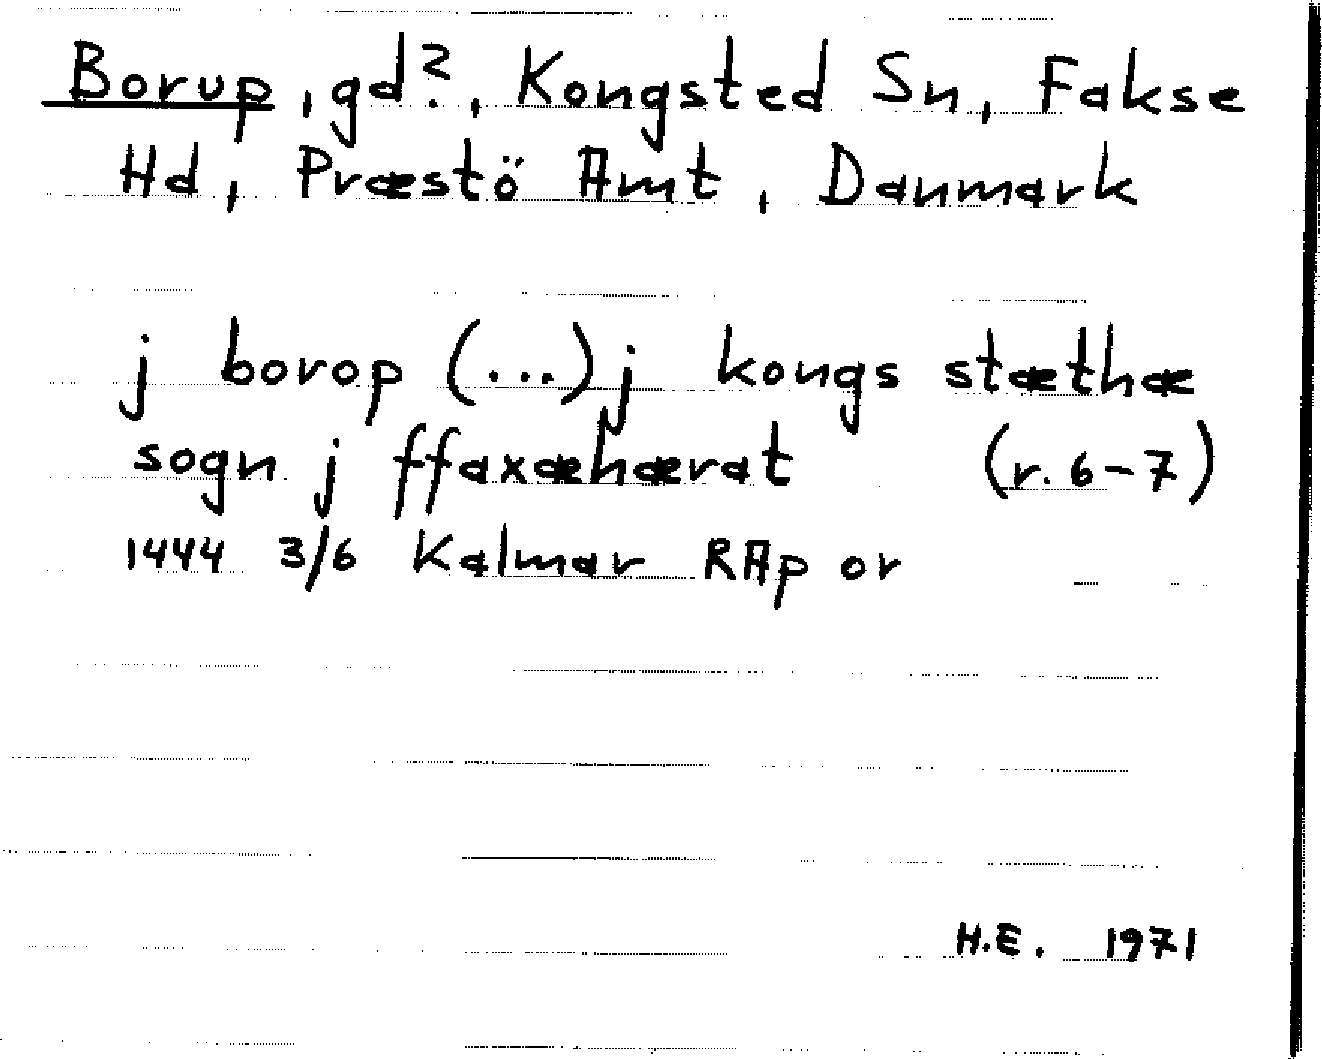 Borup, gd?, Kongsted Sn, Fakse
Hd, Præstö Amt, Danmark
j borop (...) j kongs stæthæ
sogn j ffaxæhærat (r. 6-7)
1444 3/6 Kalmar RAp or
H.E. 1971